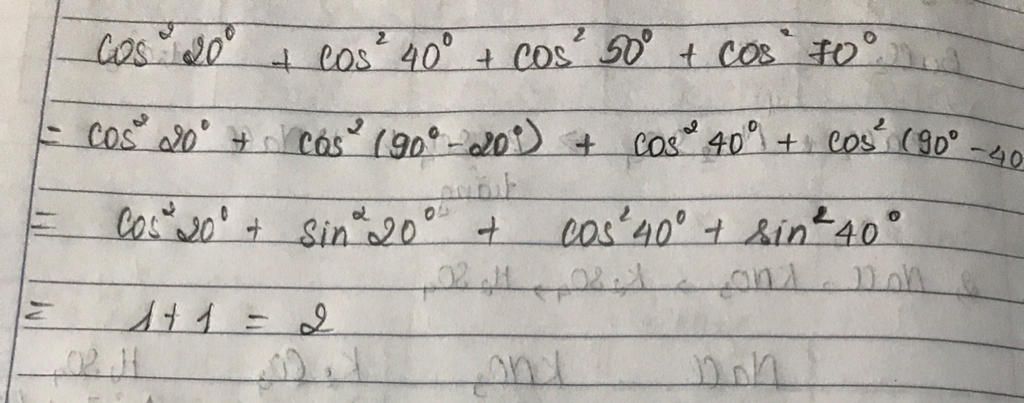 cos² 20° + cos² 40° + cos² 50° + cos² 70°
= cos² 20° + cos² (90° - 20°) + cos² 40° + cos² (90° - 40
= cos² 20° + sin² 20° + cos² 40° + sin² 40°
= 1 + 1 = 2